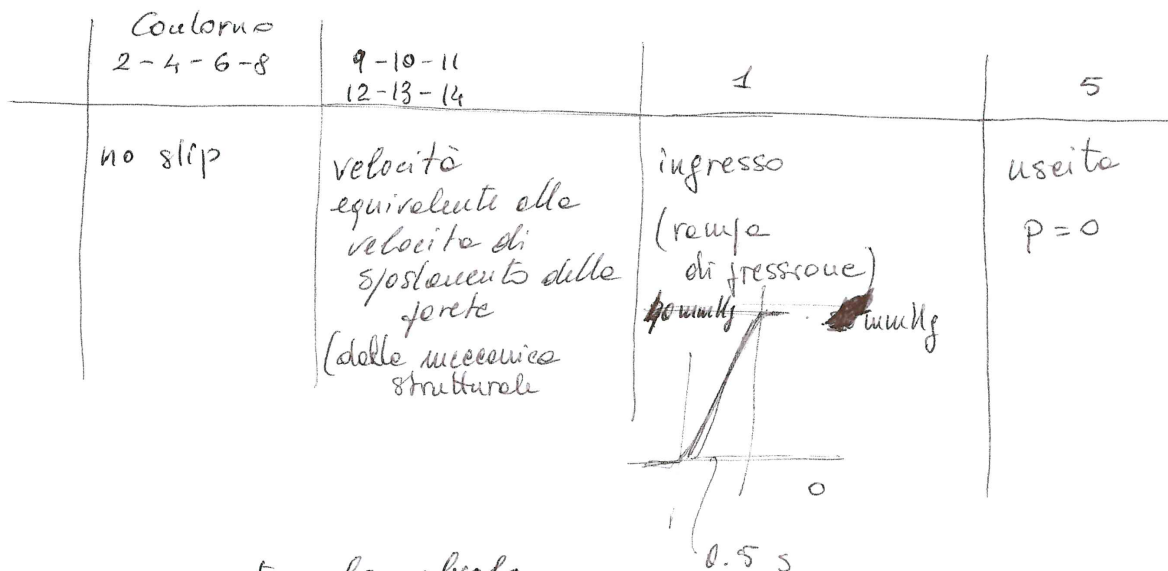 Contorno
2 - 4 - 6 - 8
9 - 10 - 11
12 - 13 - 14
1
5
no slip
velocità
equivalente alla
velocità di
spostamento della
parete
(dalla meccanica
strutturale
ingresso
(rampa
di pressione)
mmHg
mmHg
0
0.5 s
uscita
P = 0